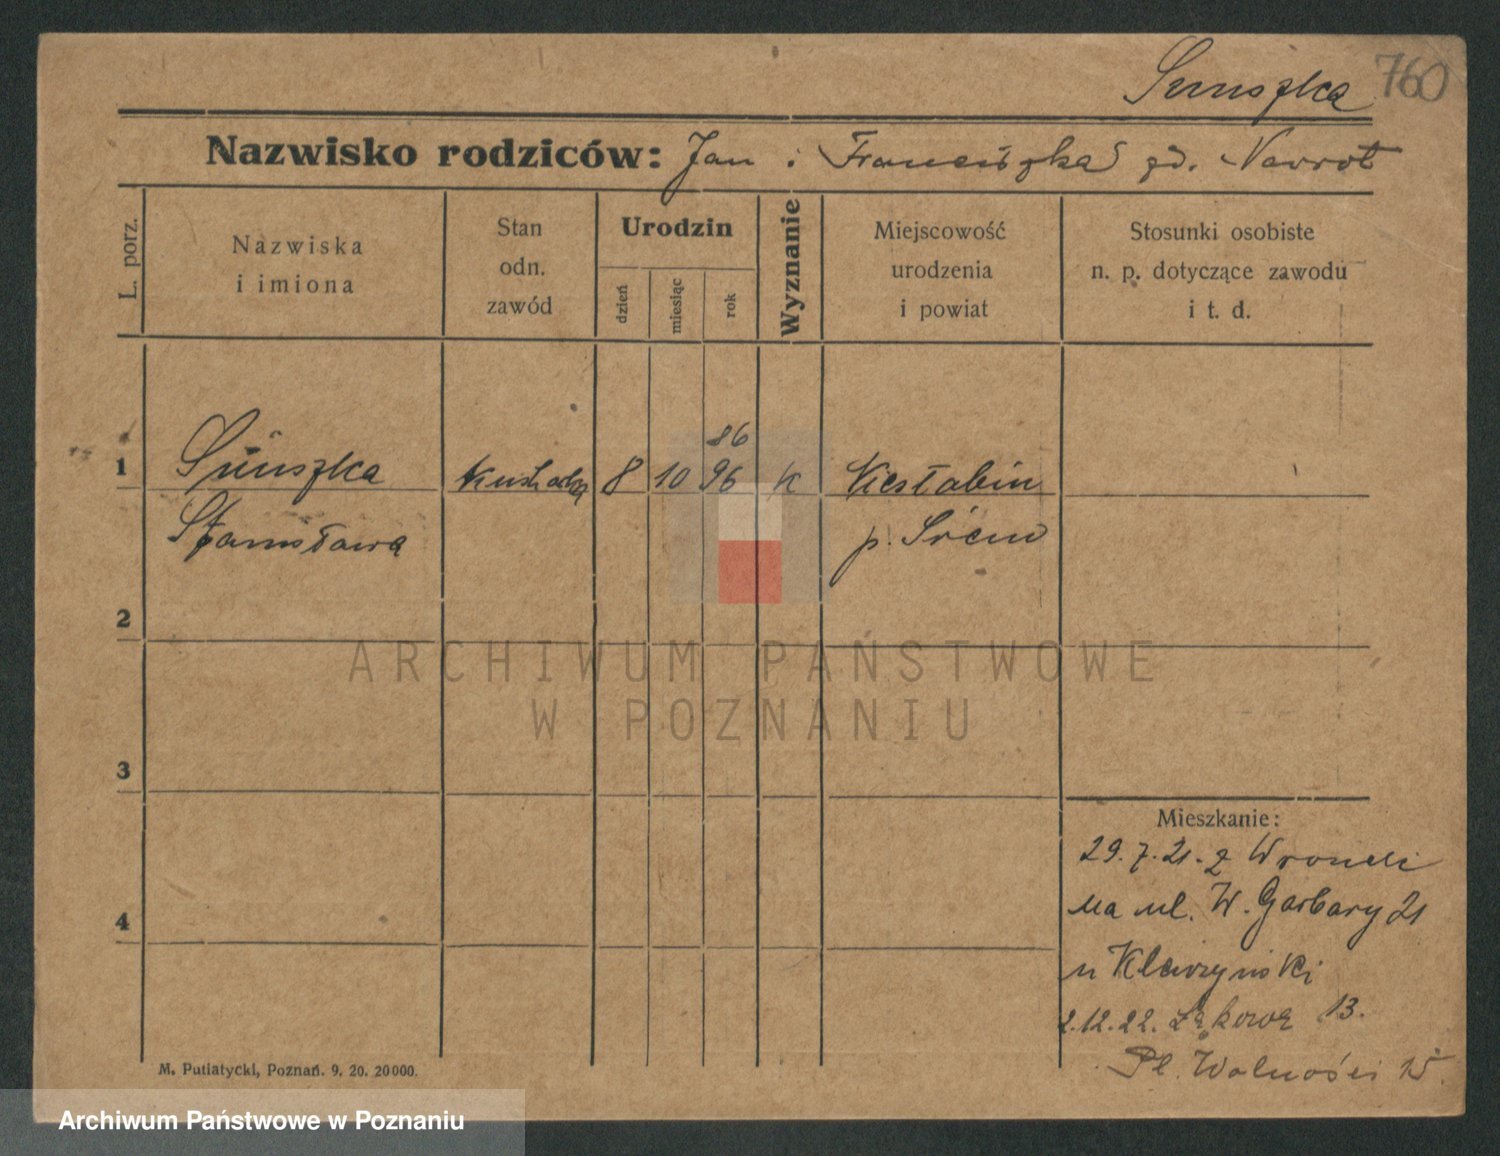 760
Nazwisko rodziców: Jan i Franciszka zd. Nawrot
L. porz.
Nazwiska
i imiona
Stan
odn.
zawód
Urodzin
dzień
miesiąc
rok
Wyznanie
Miejscowość
urodzenia
i powiat
Stosunki osobiste
n. p. dotyczące zawodu
i t. d.
86
1 8 10 96 K
Stanisława p. Śrem
2
3
4
Mieszkanie:
29.7.21. z Wronek
na ul. W. Garbary 21
u
2.12.22. Łąkowa 13.
Pl. Wolności 15
M. Putiatycki, Poznań. 9. 20. 20000.
ARCHIWUM PAŃSTWOWE
W POZNANIU
Archiwum Państwowe w Poznaniu